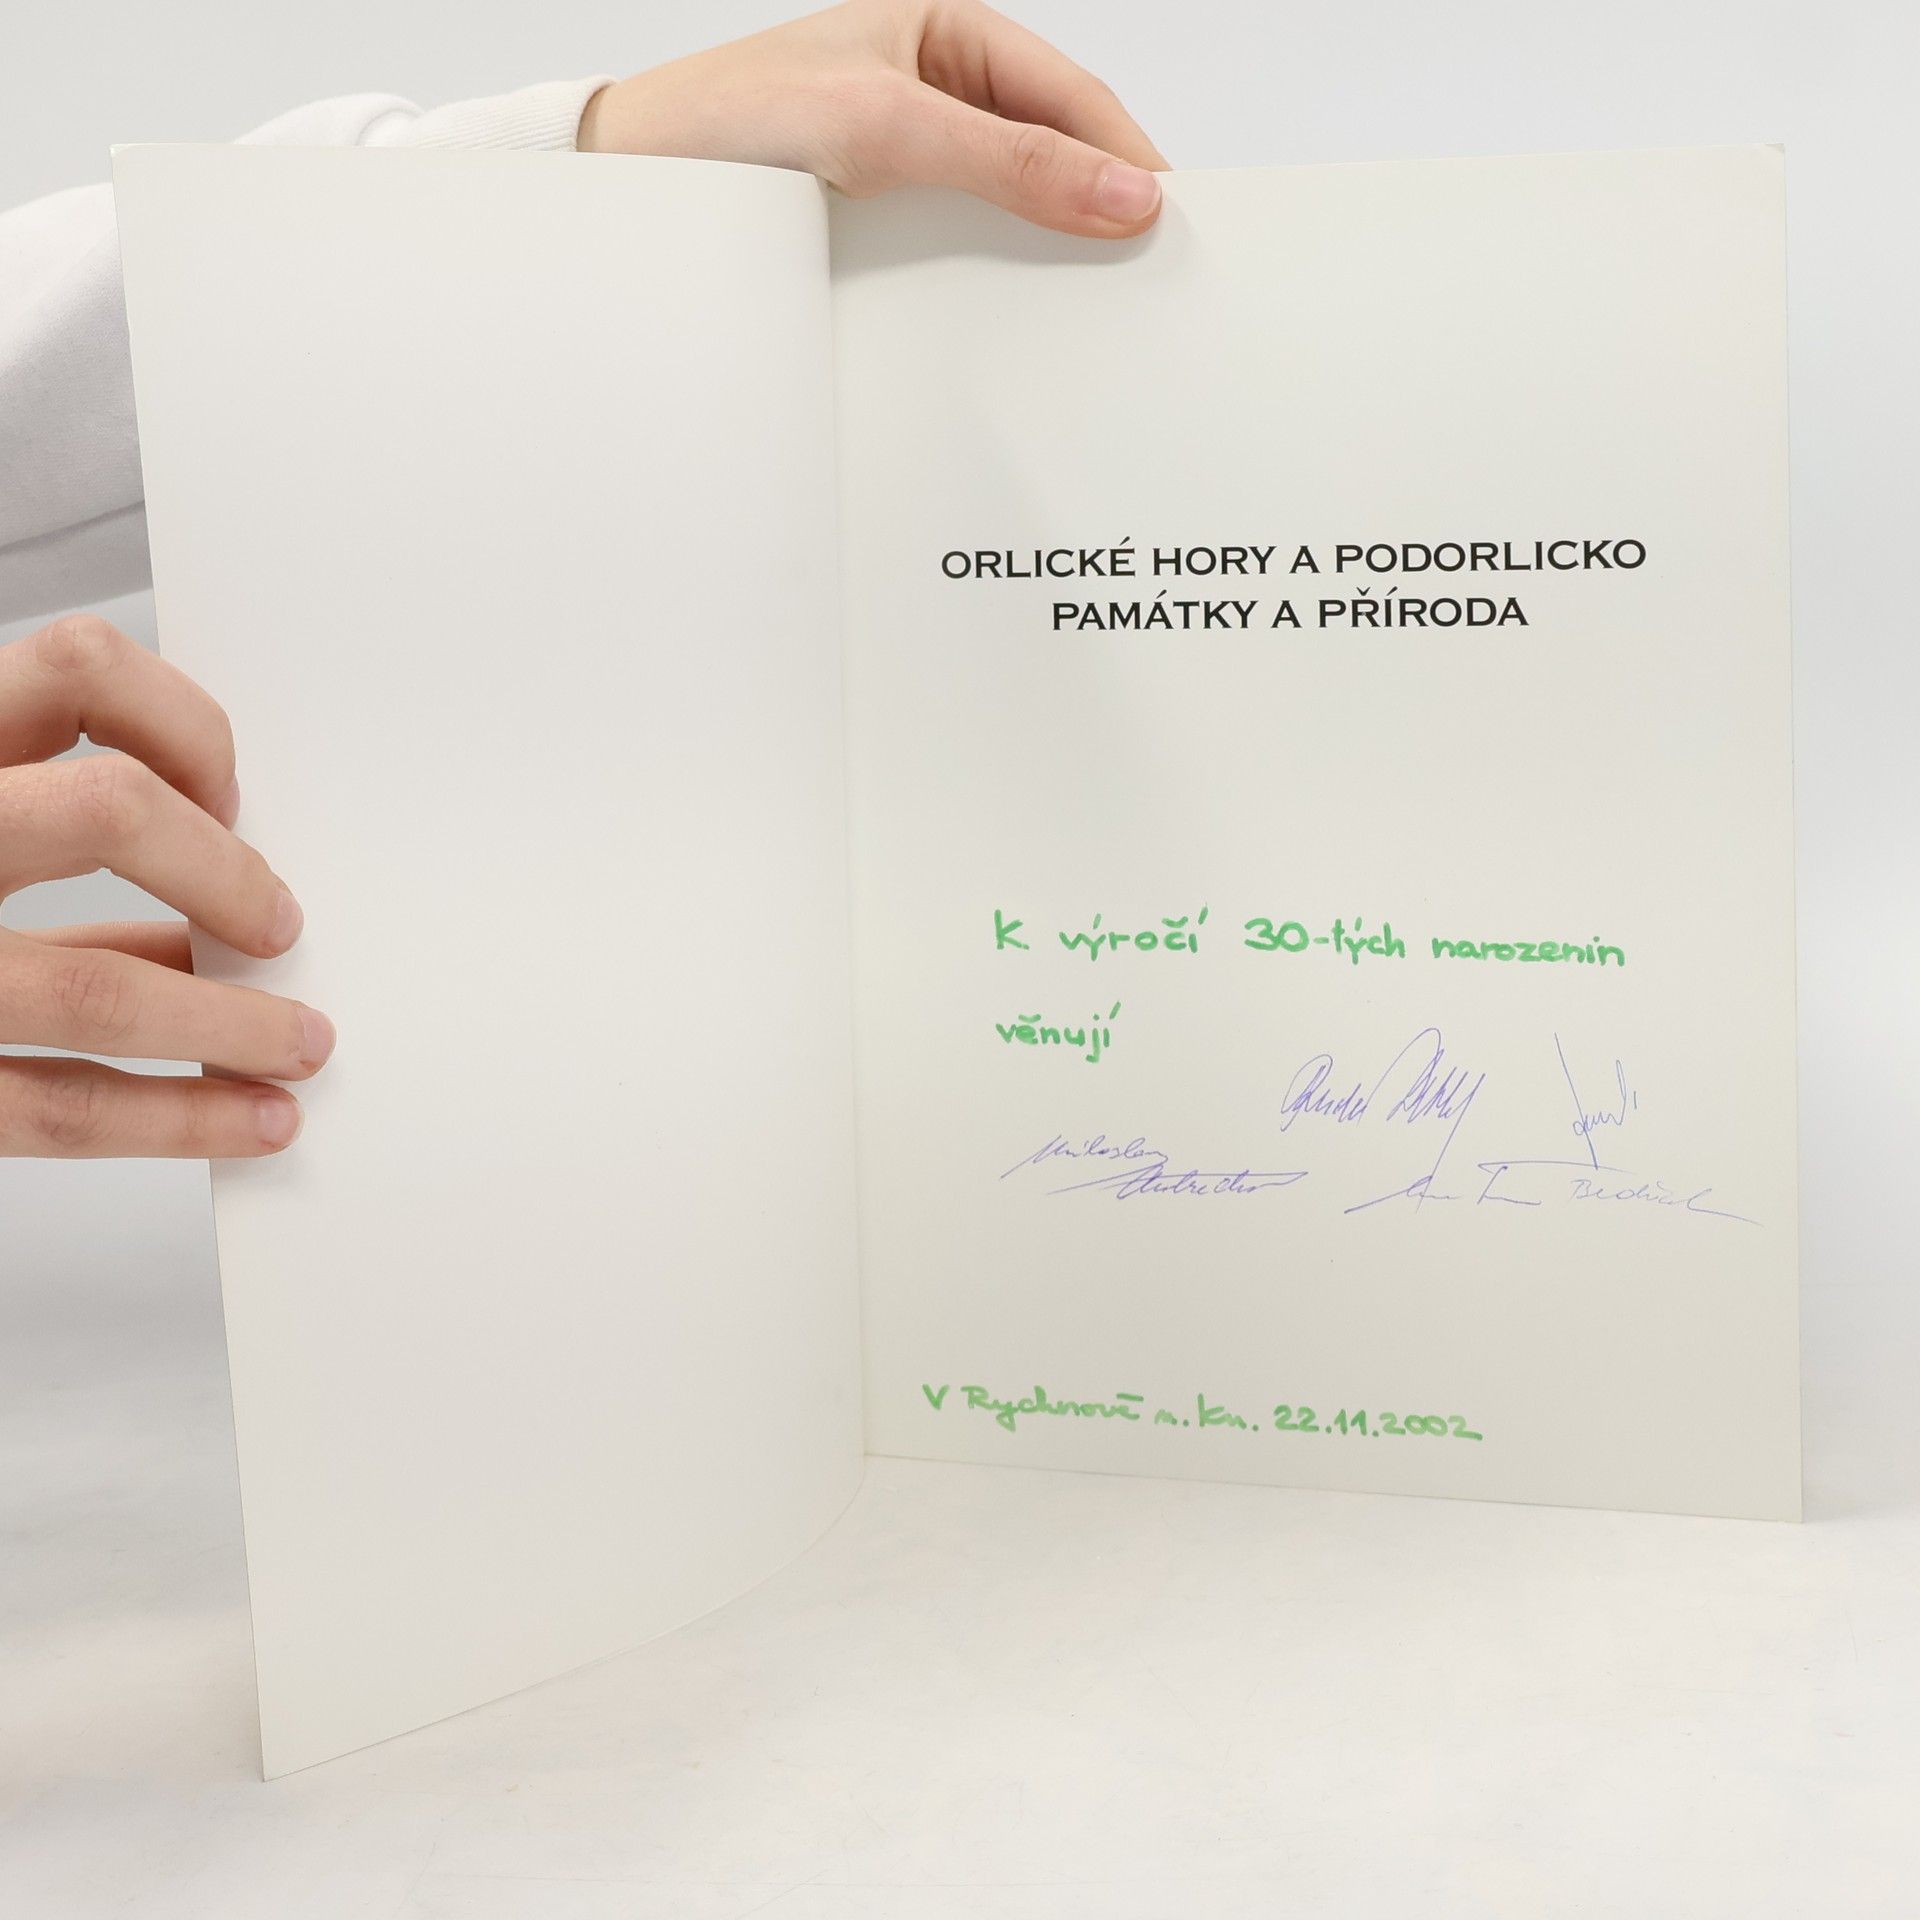 ORLICKÉ HORY A PODORLICKO
PAMÁTKY A PŘÍRODA
K výročí 30-tých narozenin
věnují
Miloslav
V Rychnově n. Kn. 22.11.2002